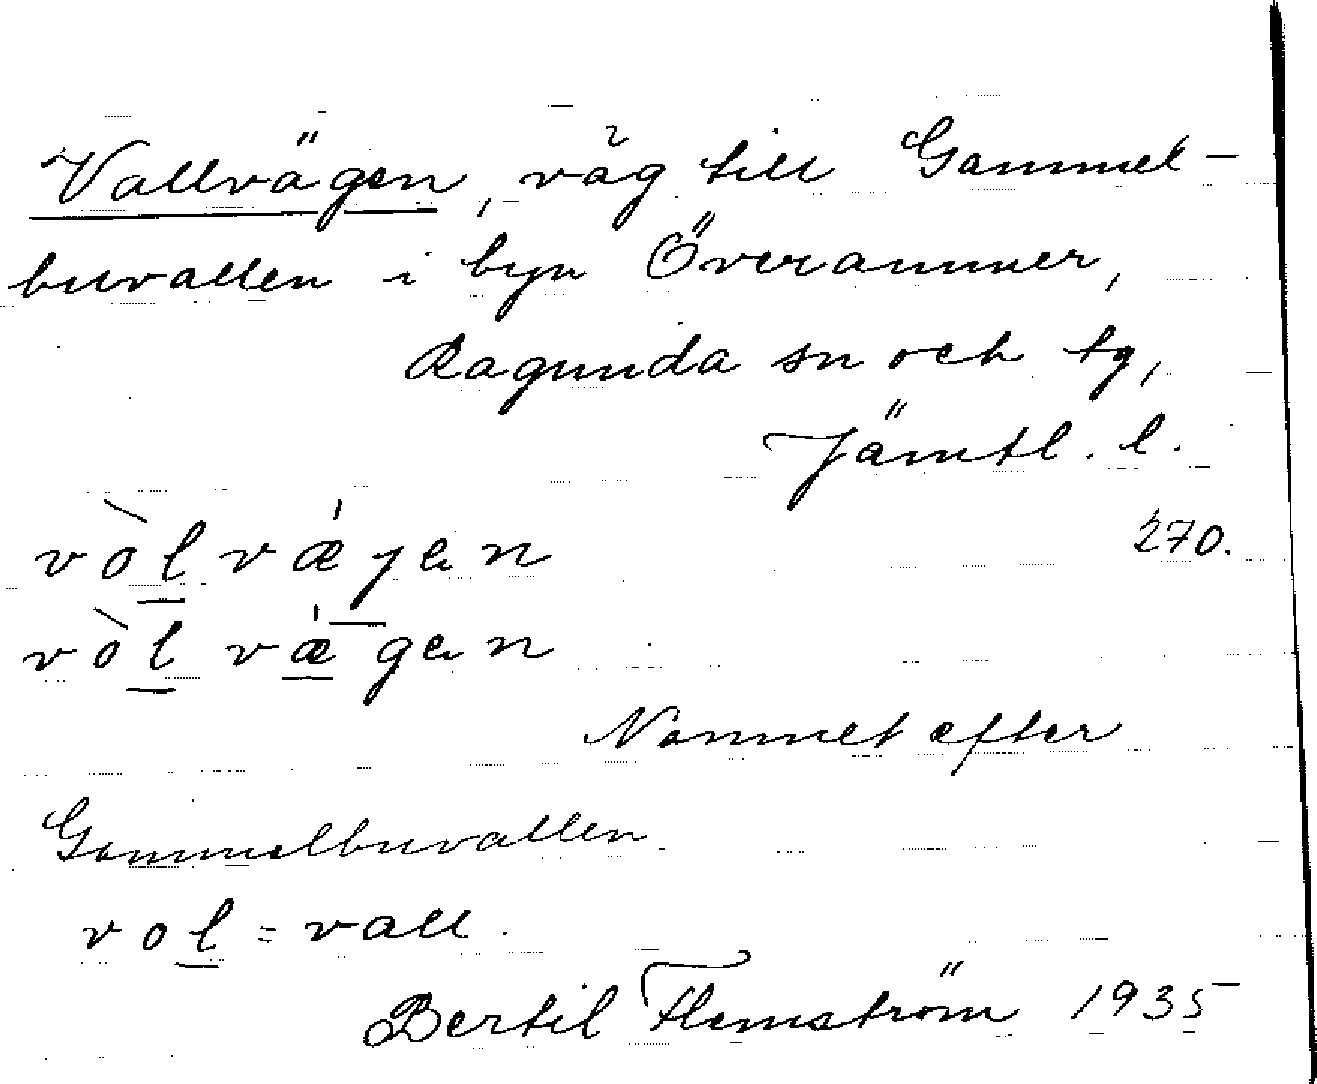 Vallvägen, väg till Gammel-
buvallen i byn Överammer,
Ragunda sn och tg,
Jämtl. l.
270.
vòlvǽgen
vòlvǽgen
Namnet efter
Gammelbuvallen.
vol = vall.
Bertil Flemström 1935